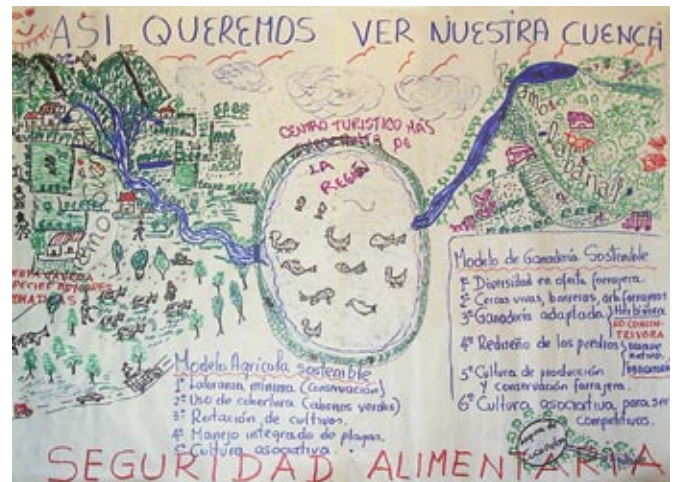 ASI QUEREMOS VER NUESTRA CUENCA
CENTRO TURISTICO MÁS
DE
LA
REGIÓN
Modelo de Ganadería Sostenible
1º Diversidad en oferta forrajera.
2º Cercas vivas, barreras, arb. forrajeros
3º Ganadería adaptada
4º Rediseño de los predios
5º Cultura de producción
y conservación forrajera.
6º Cultura asociativa para ser
competitivos.
Modelo Agrícola sostenible
1º Labranza mínima (conservación)
2º Uso de cobertura (abonos verdes)
3º Rotación de cultivos.
4º Manejo integrado de plagas.
5º Cultura asociativa.
SEGURIDAD ALIMENTARIA